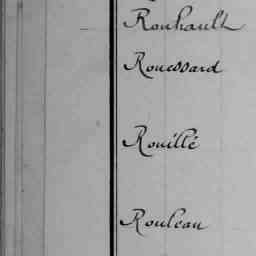 Rouhault
Rouessard
Rouillé
Rouleau